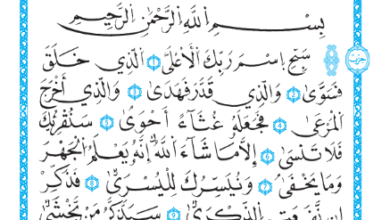 بِسْمِ اللَّهِ الرَّحْمَٰنِ الرَّحِيمِ
سَبِّحِ اسْمَ رَبِّكَ الْأَعْلَى ١ الَّذِي خَلَقَ
فَسَوَّىٰ ٢ وَالَّذِي قَدَّرَ فَهَدَىٰ ٣ وَالَّذِي أَخْرَجَ
الْمَرْعَىٰ ٤ فَجَعَلَهُ غُثَاءً أَحْوَىٰ ٥ سَنُقْرِئُكَ
فَلَا تَنْسَىٰ ٦ إِلَّا مَا شَاءَ اللَّهُ إِنَّهُ يَعْلَمُ الْجَهْرَ
وَمَا يَخْفَىٰ ٧ وَنُيَسِّرُكَ لِلْيُسْرَىٰ ٨ فَذَكِّرْ
إِنْ نَفَعَتِ الذِّكْرَىٰ ٩ سَيَذَّكَّرُ مَنْ يَخْشَىٰ